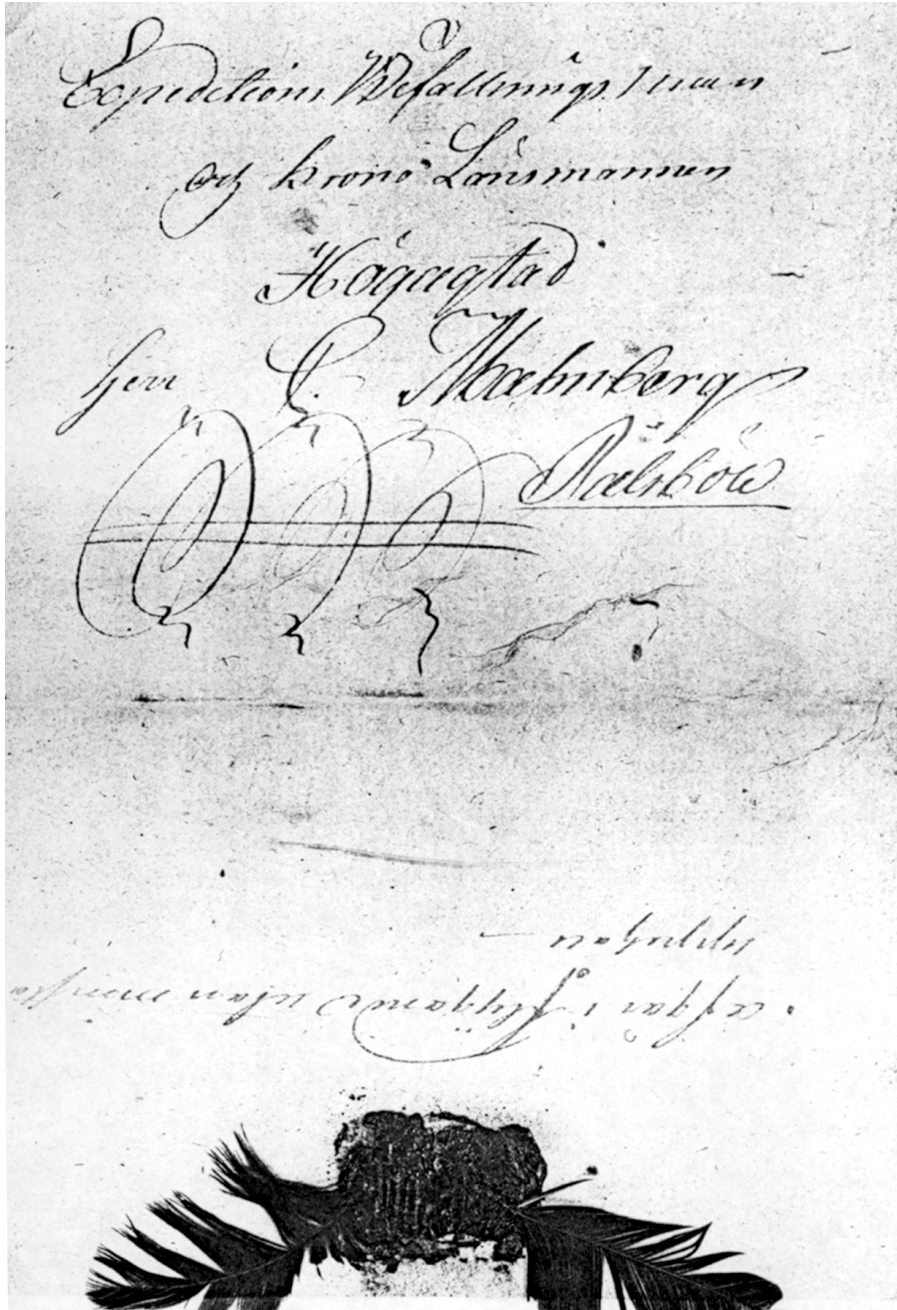 Expeditions Befallnings man
och Krono Länsmannen
Högagtad
Herr C. Malmberg
afgår i flygand utan minsta
uppehåll —